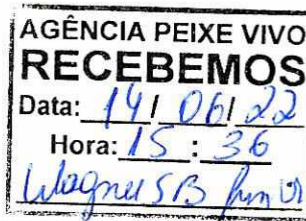 AGÊNCIA PEIXE VIVO
RECEBEMOS
Data: 14/06/22
Hora: 15:36
Wagner SB